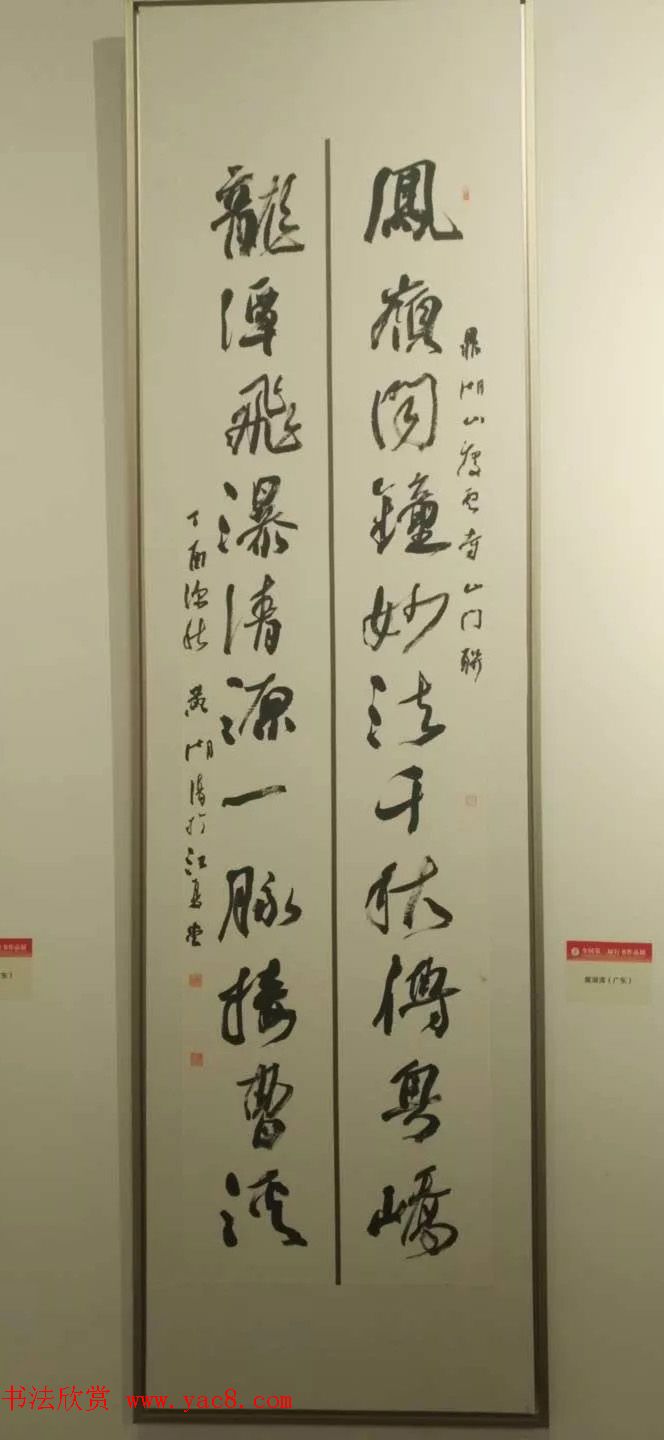 鳳嶺聞鐘妙法千秋傳粤嶠
鼎湖山慶雲寺山門聯
龍潭飛瀑清源一脉接曹溪
丁酉深秋 黄湖清於江夏堂
（广东）
书法欣赏 www.yac8.com